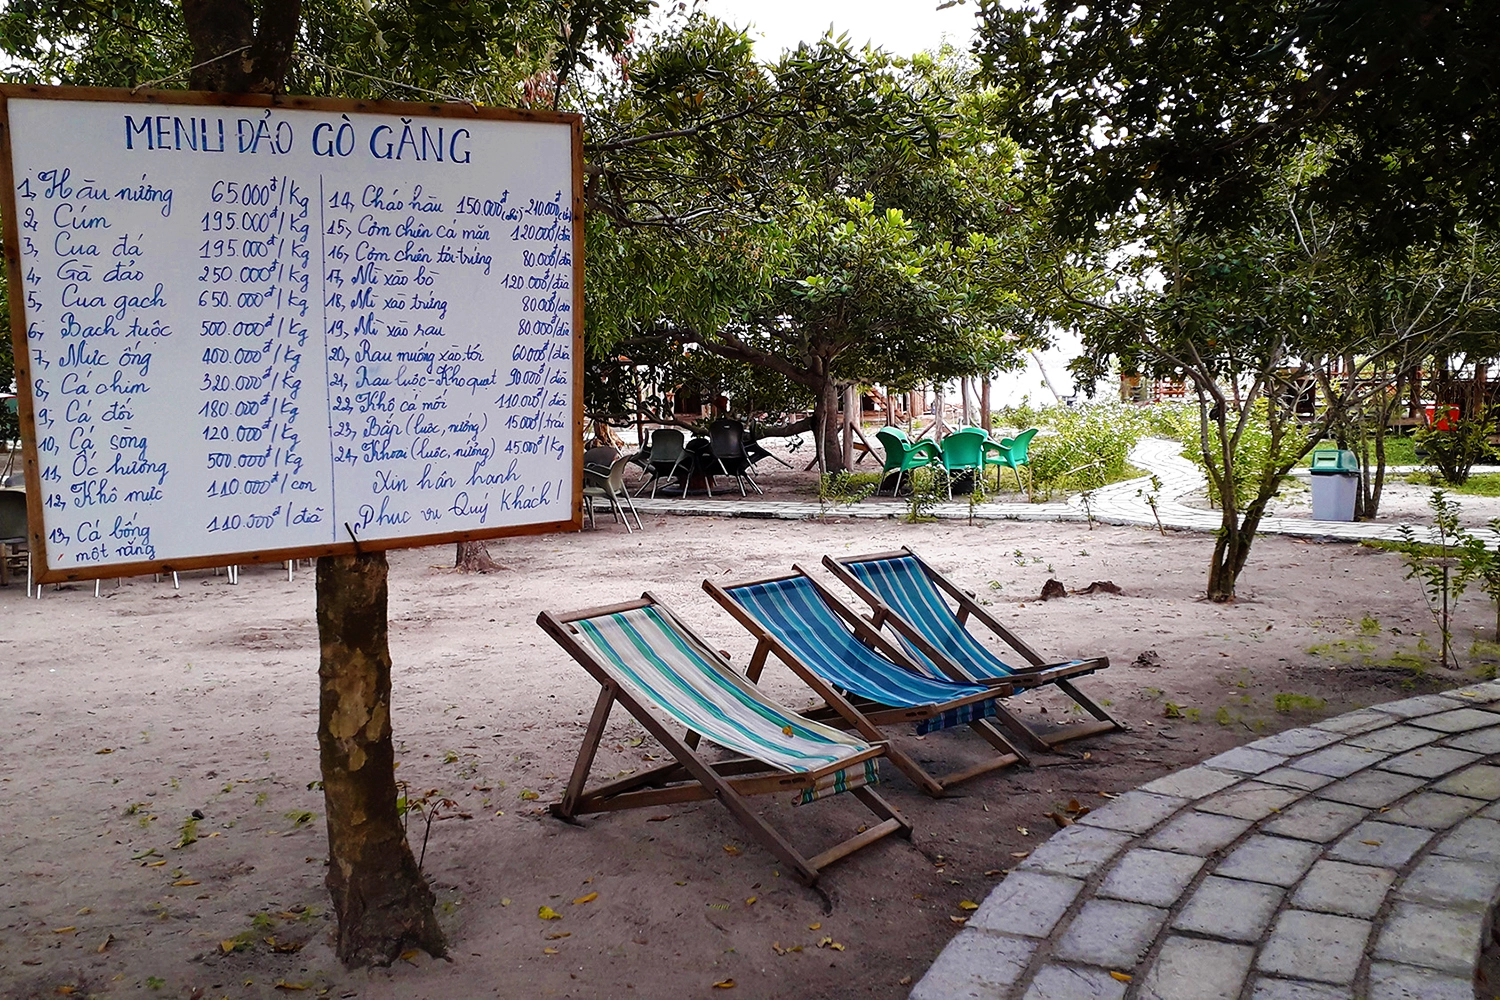 MENU ĐẢO GÒ GĂNG
1, Hàu nướng 65.000đ/kg
2, Cúm 195.000đ/kg
3, Cua đá 195.000đ/kg
4, Gà đảo 250.000đ/kg
5, Cua gạch 650.000đ/kg
6, Bạch tuộc 500.000đ/kg
7, Mực ống 400.000đ/kg
8, Cá chim 320.000đ/kg
9, Cá đối 180.000đ/kg
10, Cá sòng 120.000đ/kg
11, Ốc hương 500.000đ/kg
12, Khô mực 110.000đ/con
13, Cá bống 110.000đ/dĩa
một nắng
14, Cháo hàu 150.000đ - 210.000đ
15, Cơm chiên cá mặn 120.000đ/dĩa
16, Cơm chiên tỏi-trứng 80.000đ/dĩa
17, Mì xào bò 120.000đ/dĩa
18, Mì xào trứng 80.000đ/dĩa
19, Mì xào rau 80.000đ/dĩa
20, Rau muống xào tỏi 60.000đ/dĩa
21, Rau luộc-Kho quẹt 90.000đ/dĩa
22, Khô cá mối 110.000đ/dĩa
23, Bắp (luộc, nướng) 15.000đ/trái
24, Khoai (luộc, nướng) 45.000đ/kg
Xin hân hạnh
Phục vụ Quý Khách!